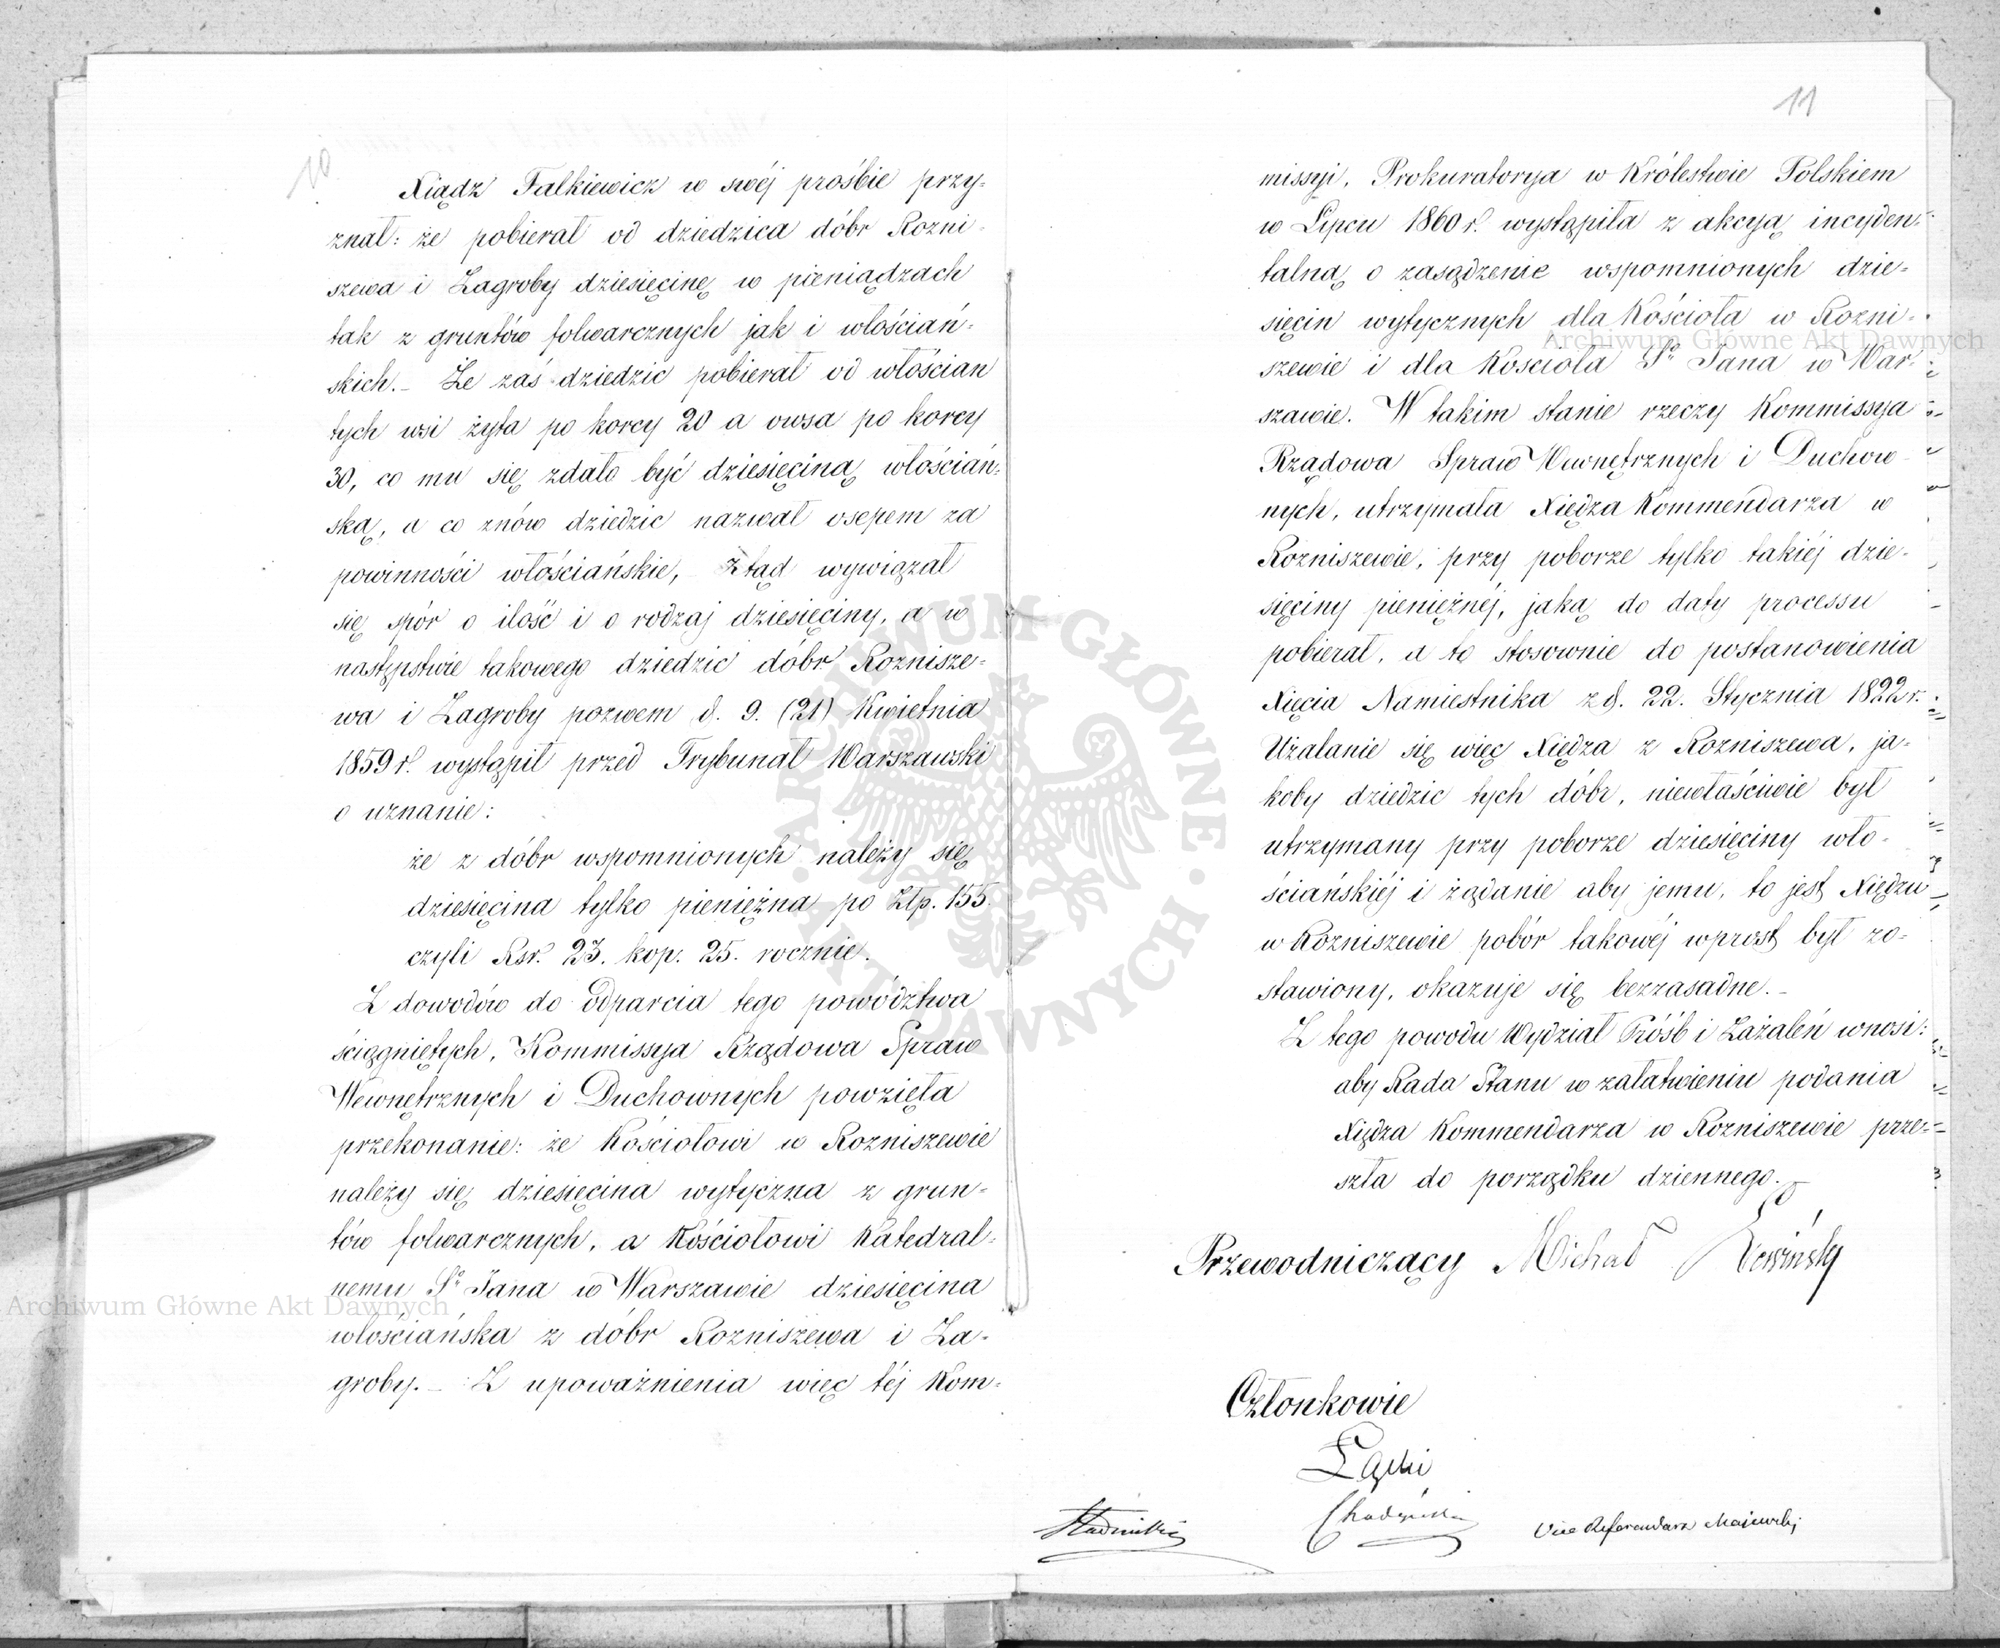 10.
Xiądz Falkiewicz w swéj prośbie przy-
znał: że pobierał od dziedzica dóbr Rozni-
szewa i Zagroby dziesięcinę w pieniądzach
tak z gruntów folwarcznych jak i włościań-
skich.- Że zaś dziedzic pobierał od włościan
tych wsi żyta po korcy 20 a owsa po korcy
30, co mu się zdało być dziesięciną włościań-
ską, a co znów dziedzic nazwał osepem za
powinności włościańskie, ztąd wywiązał
się spór o ilość i o rodzaj dziesięciny, a w
następstwie takowego dziedzic dóbr Roznisze-
wa i Zagroby pozwem d. 9. (21) Kwietnia
1859 r. wystąpił przed Trybunał Warszawski
o uznanie:
że z dóbr wspomnionych należy się
dziesięcina tylko pieniężna po Złp. 155.
czyli Rsr. 23. kop. 25. rocznie.
Z dowodów do odparcia tego powództwa
ściągniętych, Kommissya Rządowa Spraw
Wewnętrznych i Duchownych powzięła
przekonanie: że Kościołowi w Rozniszewie
należy się dziesięcina wytyczna z grun-
tów folwarcznych, a Kościołowi Katedral-
nemu Sgo Jana w Warszawie dziesięcina
włościańska z dóbr Rozniszewa i Za-
groby.- Z upoważnienia więc téj Kom-
11
missyi, Prokuratorya w Królestwie Polskiem
w Lipcu 1860 r. wystąpiła z akcyą incyden-
talną o zasądzenie wspomnionych dzie-
sięcin wytycznych dla Kościoła w Rozni-
szewie i dla Kościoła Sgo Jana w War-
szawie. W takim stanie rzeczy Kommissya
Rządowa Spraw Wewnętrznych i Duchow-
nych, utrzymała Xiędza Kommendarza w
Rozniszewie, przy poborze tylko takiéj dzie-
sięciny pieniężnéj, jaką do daty processu
pobierał, a to stosownie do postanowienia
Xięcia Namiestnika z d. 22. Stycznia 1822 r.
Użalanie się więc Xiędza z Rozniszewa, ja-
koby dziedzic tych dóbr, niewłaściwie był
utrzymany przy poborze dziesięciny wło-
ściańskiéj i żądanie aby jemu, to jest Xiędzu
w Rozniszewie pobór takowéj wprost był zo-
stawiony, okazuje się bezzasadne.-
Z tego powodu Wydział Próśb i Zażaleń wnosi:
aby Rada Stanu w załatwieniu podania
Xiędza Kommendarza w Rozniszewie prze-
szła do porządku dziennego.
Przewodniczący Michał
Członkowie
Łącki
Vice Referendarz Majewski
Archiwum Główne Akt Dawnych
Archiwum Główne Akt Dawnych
ARCHIWUM GŁÓWNE AKT DAWNYCH